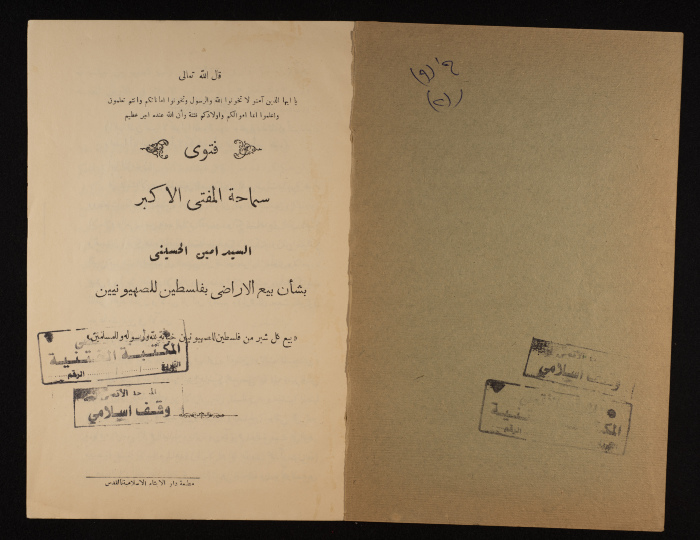 قال الله تعالى
يا ايها الذين آمنو لا تخونوا الله والرسول وتخونوا اماناتكم وانتم تعلمون
واعلموا انما اموالكم واولادكم فتنة وأن الله عنده اجر عظيم
فتوى
سماحة المفتى الاكبر
السيد امين الحسينى
بشأن بيع الاراضى بفلسطين للصهيونيين
«بيع كل شبر من فلسطين للصهيونيين خيانة لله ولرسوله وللمسلمين»
المكتبة الختنية
التاريخ الرقم
المسجد الأقصى
وقف اسلامي
مطبعة دار الايتام الاسلامية بالقدس
ح١ (٩)
(٢)
وقف اسلامي
الرقم